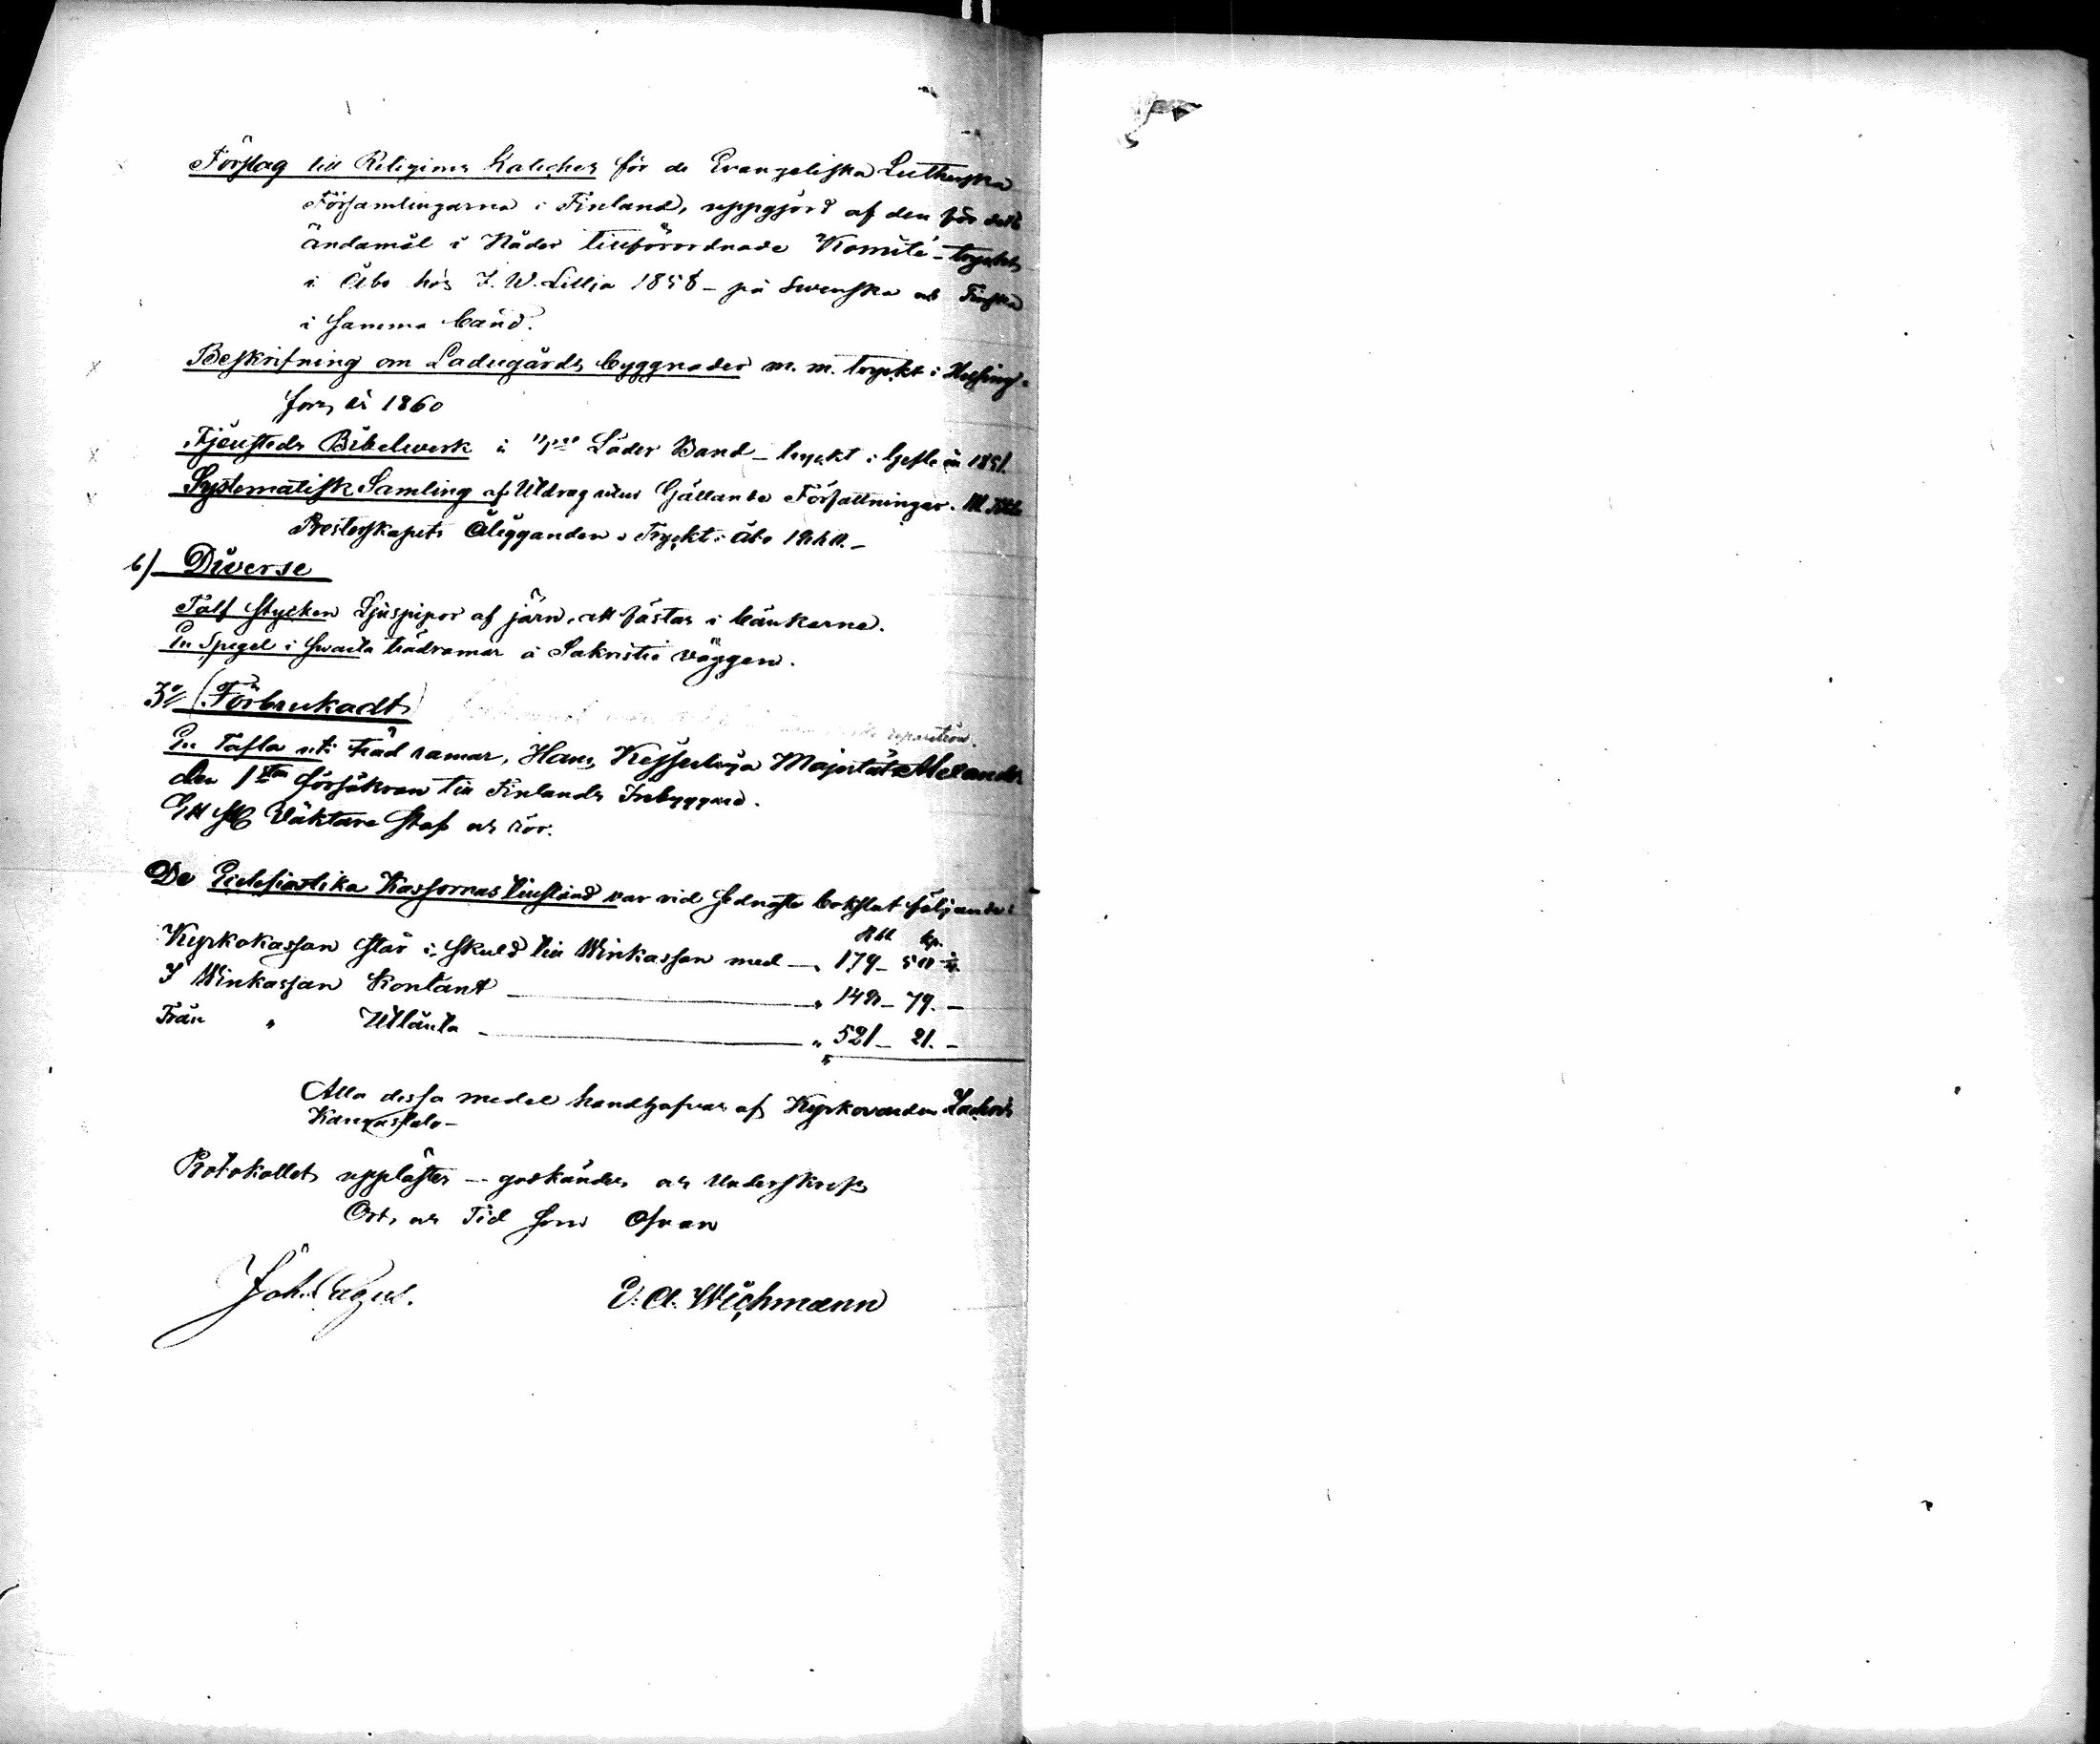 Förslag till Religions Kateches för de Evangeliska Lutherska
Församlingarna i Finland, uppgjord af den för detta
ändamål i Nåder tillförordnade Komité - tryckt
i Åbo hos J. W. Lillja 1858 - på Svenska och Finska
i samma band.
Beskrifning om Ladugårds byggnader m. m. tryckt i Helsing-
fors år 1860
Fjellstedts Bibelverk i Läder Band - tryckt i Gefle år 1851.
Systematisk Samling af Utdrag utur Gällande Författningar.
Presterskapets Åligganden. Tryckt i Åbo
6) Diverse
Tolf stycken Ljuspipor af järn, att fästas i bänkarne.
En Spegel i svarta trädramar å Sakristie väggen.
3o/ (Förbrukadt)
reparation.
En Tafla uti träd ramar, Hans Kejserliga Majestäts Alexander
den 1sta försäkran till Finlands Inbyggare.
Ett st. Väktare staf och rör.
De Ecclesiastika Kassornas tillstånd var vid sednaste bokslut följande:
Rbl kp.
Kyrkokassan står i skuld till Vinkassan med - " 179 -
I Vinkassan Kontant - " 148 - 79. -
Från " Utlånta - " 521 - 21. -
Alla dessa medel handhafvas af Kyrkovärden
Kangastalo -
Protokollet uppläst - godkändes och Underskrefs
Ort och Tid som Ofvan
Joh.
V. A. Wichmann